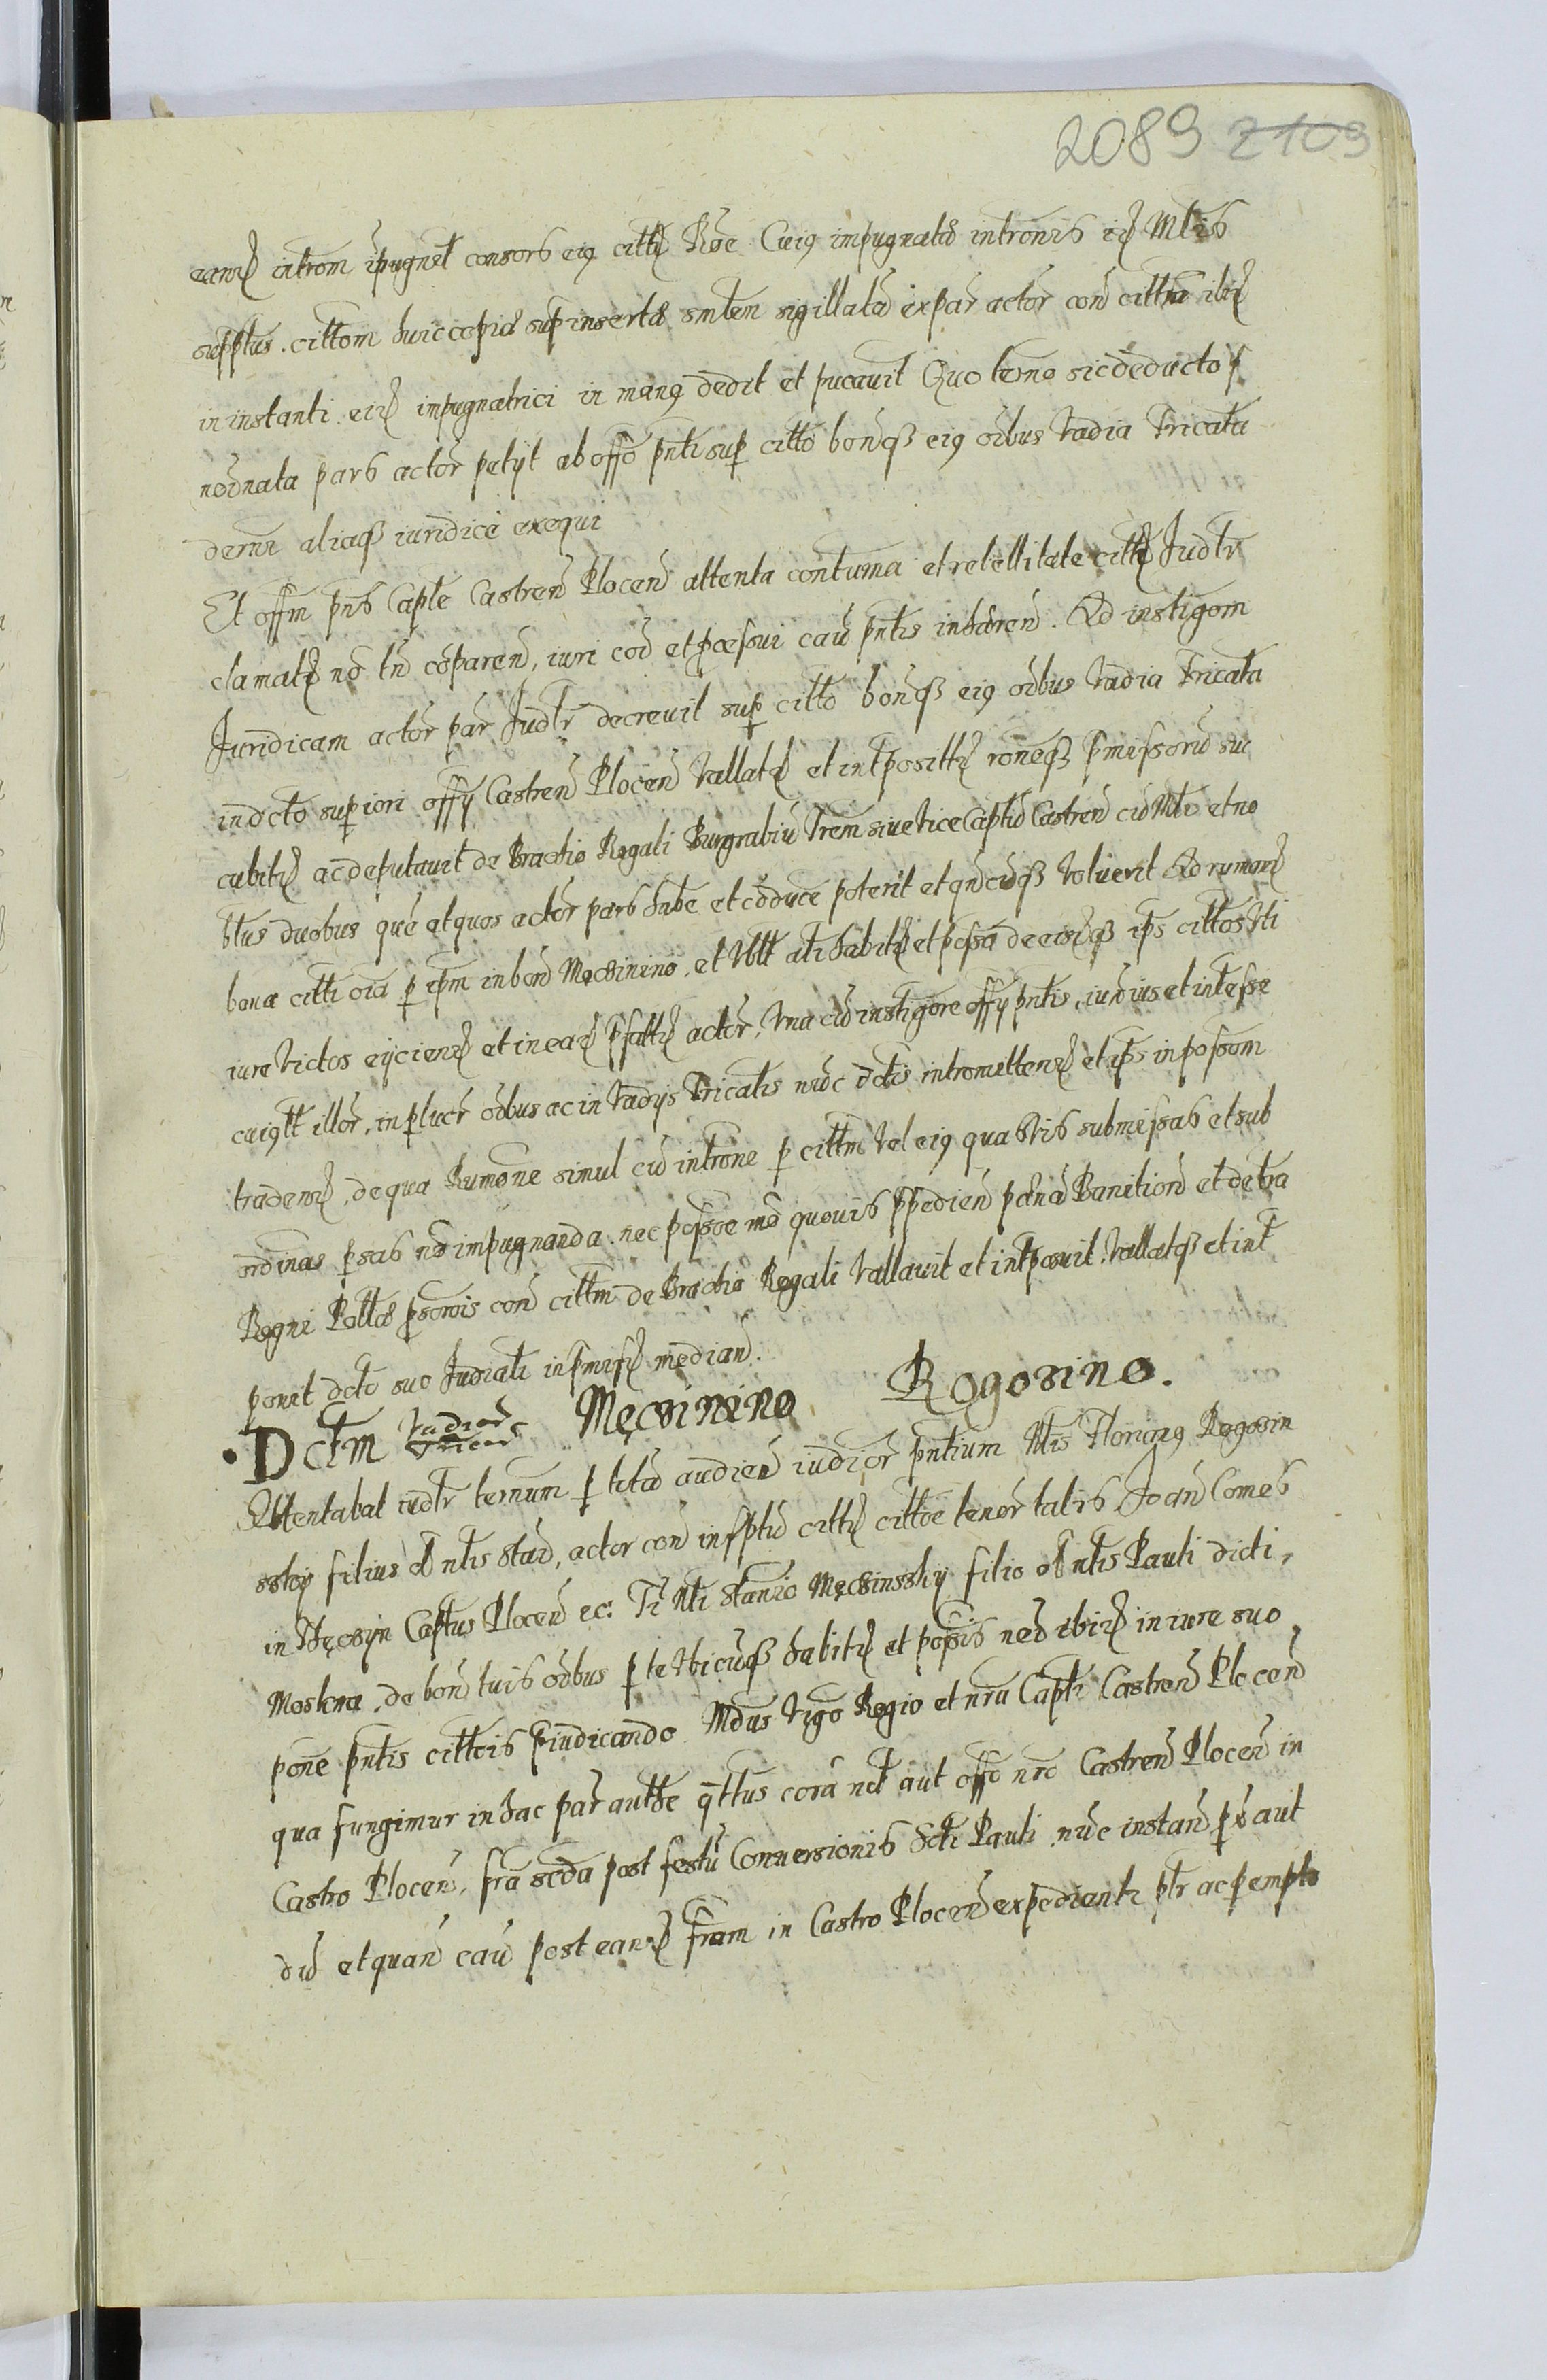 2089 2109
eand introm ipugnet consors eig citti Roe Cuig impugnatio intronis id Mltis
suspptus. cittom huic copiæ sup insertæ smtem sigillatã ex par actor con cittum ibid
in instanti. eid impugnatrici in mang dedit et pucauit Quo termo sic deducto p
noinata pars actor petyt ab offo pnti sup citto bonqз eig oibus Vadia Tricata
derni aliasqз iuridice exequi
Et offm pns Caple Castren Plocen attenta contuma et rebellitate citti Judtr
clamati no tn comparen, iuri coi et pcessui cau pntis inhæren. Ad instigom
Juridicam actor par Judtr decreuit sup citto bonqз eig oibus Vadia Tricata
in dcto superiori offy Castren Plocen Vallata et intposita roneqз pmissoru suc
cubita ac deputauit de Brachio Regali Burgrabiu Trem siue Vice Captu Castren cu Mto et no
blus duobus que et quos actor pars habe et coducẽ poterit et qndcuqз Voluerit Ad rumand
bona citti oia p ipm in bon Męczinino. et Vblt ali habita et possa de eisdqз ips cittos Vti
iure Victos eijciend et in ead pfatu actor, Vna cu instigore offy pntis, iuri ius et intesse
cuiglt illor, in plucr oibus ac in Vadys Tricatis nuc dctis intromittend et ips in possom
tradend, de qua Rumone simul cu introne p cittm Vel eig quasVis submissas et sub
ordinas psas no impugnanda. nec possoe mo quouis ppedien pæna Banition et de tra
Regni Pollæ psonis con cittm de Brachio Regali Vallauit et intposuit. Vallatqз et int
ponit dcto suo Judiali in pmiss median.
Dctm Vadior Tricar Męczinino Rogosino.
Attentabat iudtr ternum p lita audien iudior pntium Nlis Floriang Rogozin
sski filius olim nlis Stan, actor con inspptu citti cittoe tenor talis Joan Comes
in Tęczyn Captus Plocen ec: Ti Nli Stanio Męczinsky filio ol nlis Pauli dicti
Moskwa. de bon tuis oibus p te Vbicuqз habitis et possis ned ibid in iure suo
pone pntis cittois piudicando Mdmus Vigo Regio et nra Capli Castren Plocen
qua fungimur in hac par authe qttus cora nob aut offo nro Castren Plocen in
Castro Plocen, fra scda post festu Conuersionis Scti Pauli nuc instan pxo aut
du et quan cau post eand fram in Castro Plocen expedienti ptr ac pempto